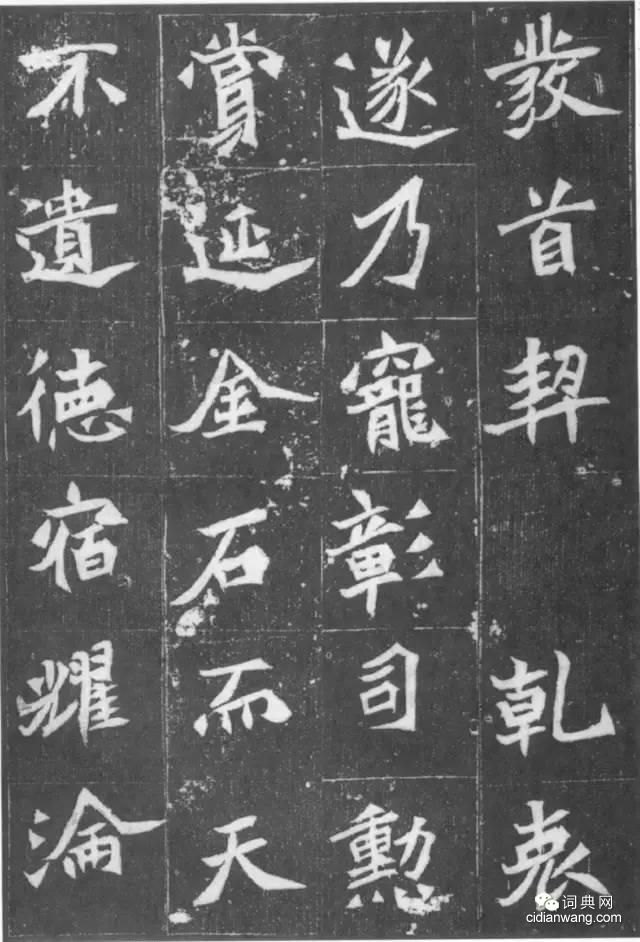 發首契　乾衷
遂乃寵彰司勳
賞延金石而天
不遺德宿耀淪
词典网
cidianwang.com